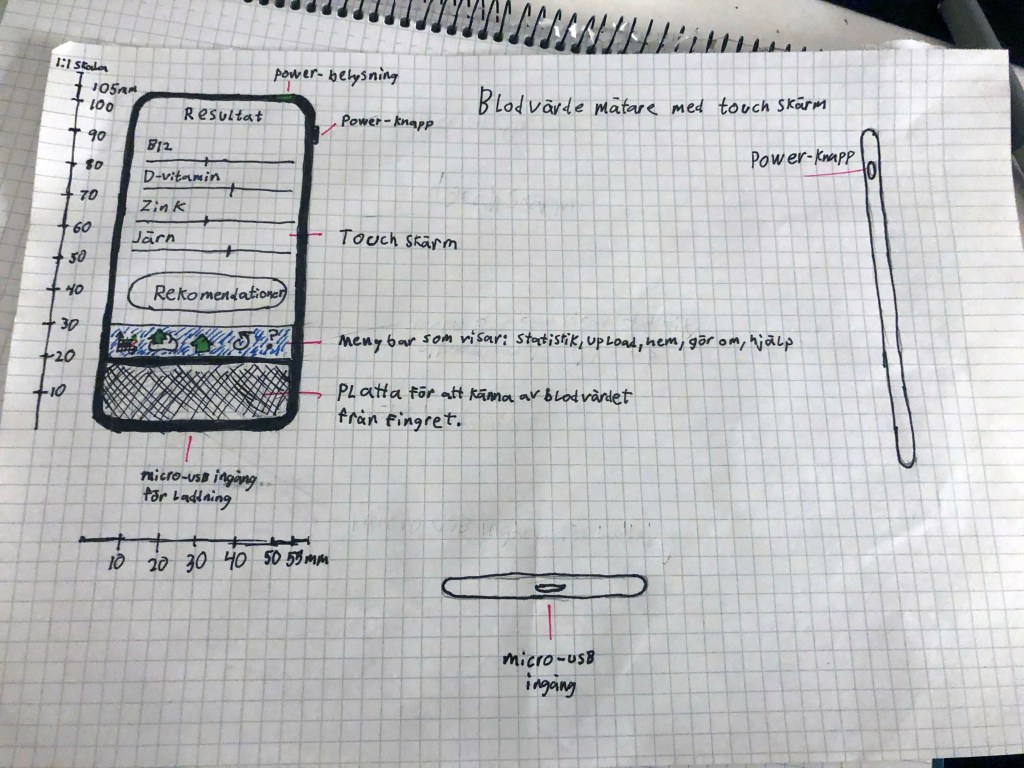 1:1 Skala
105mm
100
90
80
70
60
50
40
30
20
10
power-belysning
Power-knapp
Resultat
B12
D-vitamin
Zink
Järn
Rekomendationer
?
Blodvärde mätare med touch skärm
Power-knapp
Touch skärm
Meny bar som visar: statistik, upload, hem, gör om, hjälp
Platta för att känna av blodvärdet
från fingret.
micro-usB ingång
för laddning
10 20 30 40 50 55mm
micro-usB
ingång